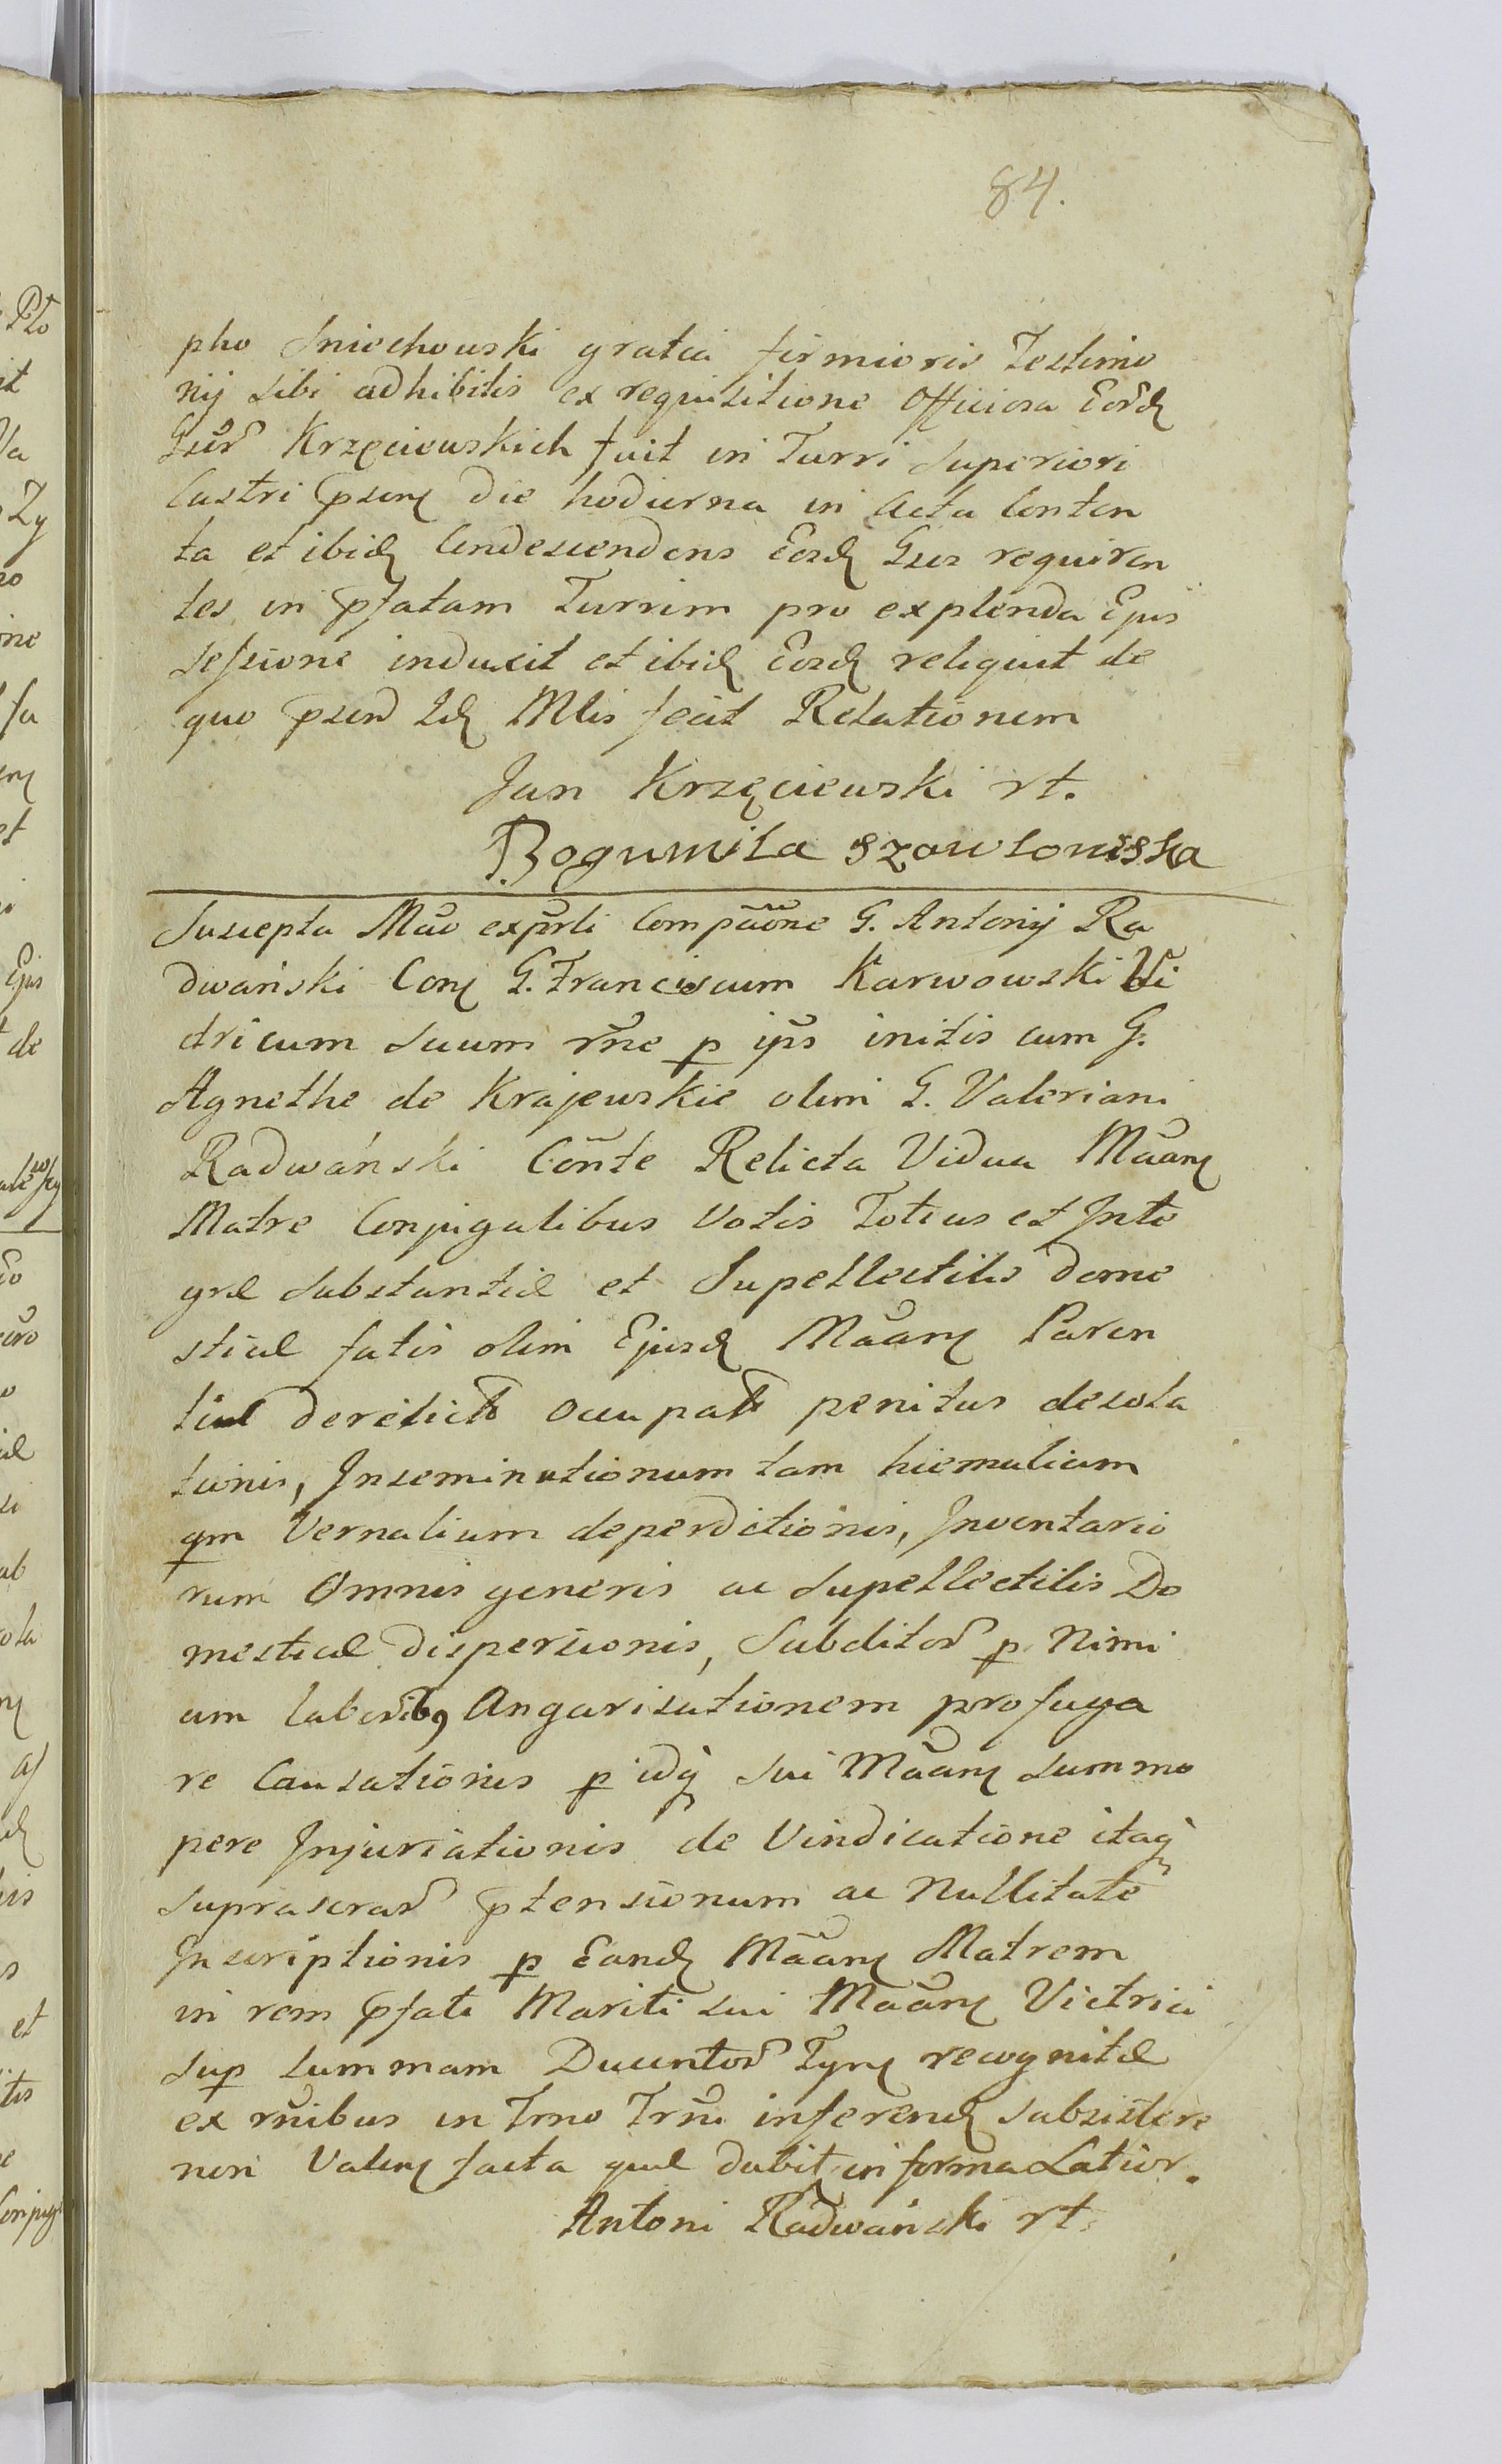 84.
pho Sniechowski gratia firmioris Testimo
nij sibi adhibitis ex requisitione Officiosa Eord
Gsor Krzęciewskich fuit in Turri Superiori
Castri psen die hodierna in Acta Conten
ta et ibid Condescendens Eosd Gsos requiren
tes in pfatam Turrim pro explenda Ejus
sessione induxit et ibid Eosd reliquit de
quo psens Id Mlis fecit Relationem
Jan Krzęciewski rt.
Bogumila
Suscepta Mao Comparone G. Antonij Ra
dwański Con G. Franciscum Karwowski Vi
dricum suum rne p ips initis cum G.
Agnethe de Krajewskie olim G. Valeriani
Radwański Conte Relicta Vidua Maam
Matre Conjugalibus Votis Totius et Inte
græ Substantiæ et Supellectilis dome
sticæ fatis olim Ejusd Maam Paren
derelict Occupat penitus desola
tionis, Inseminationum tam hiemalium
qm Vernalium deperditionis, Inventario
rum Omnis generis ac Supellectilis Do
mesticæ dispersionis, Subditor p Nimi
am laboribq Angarisationem profuga
re Causationis p idq sui Maam summo
pere Injuriationis de Vindicatione itaq
suprascrar ptensionum ac Nullitate
Inscriptionis p Eand Maam Matrem
in rem pfati Mariti sui Maam Victrici
sup summam Ducentor Tym recognitæ
ex rnibus in Trno Trni inferend subsistere
non Valen facta quæ dabit in forma Latior.
Antoni Radwański rt.